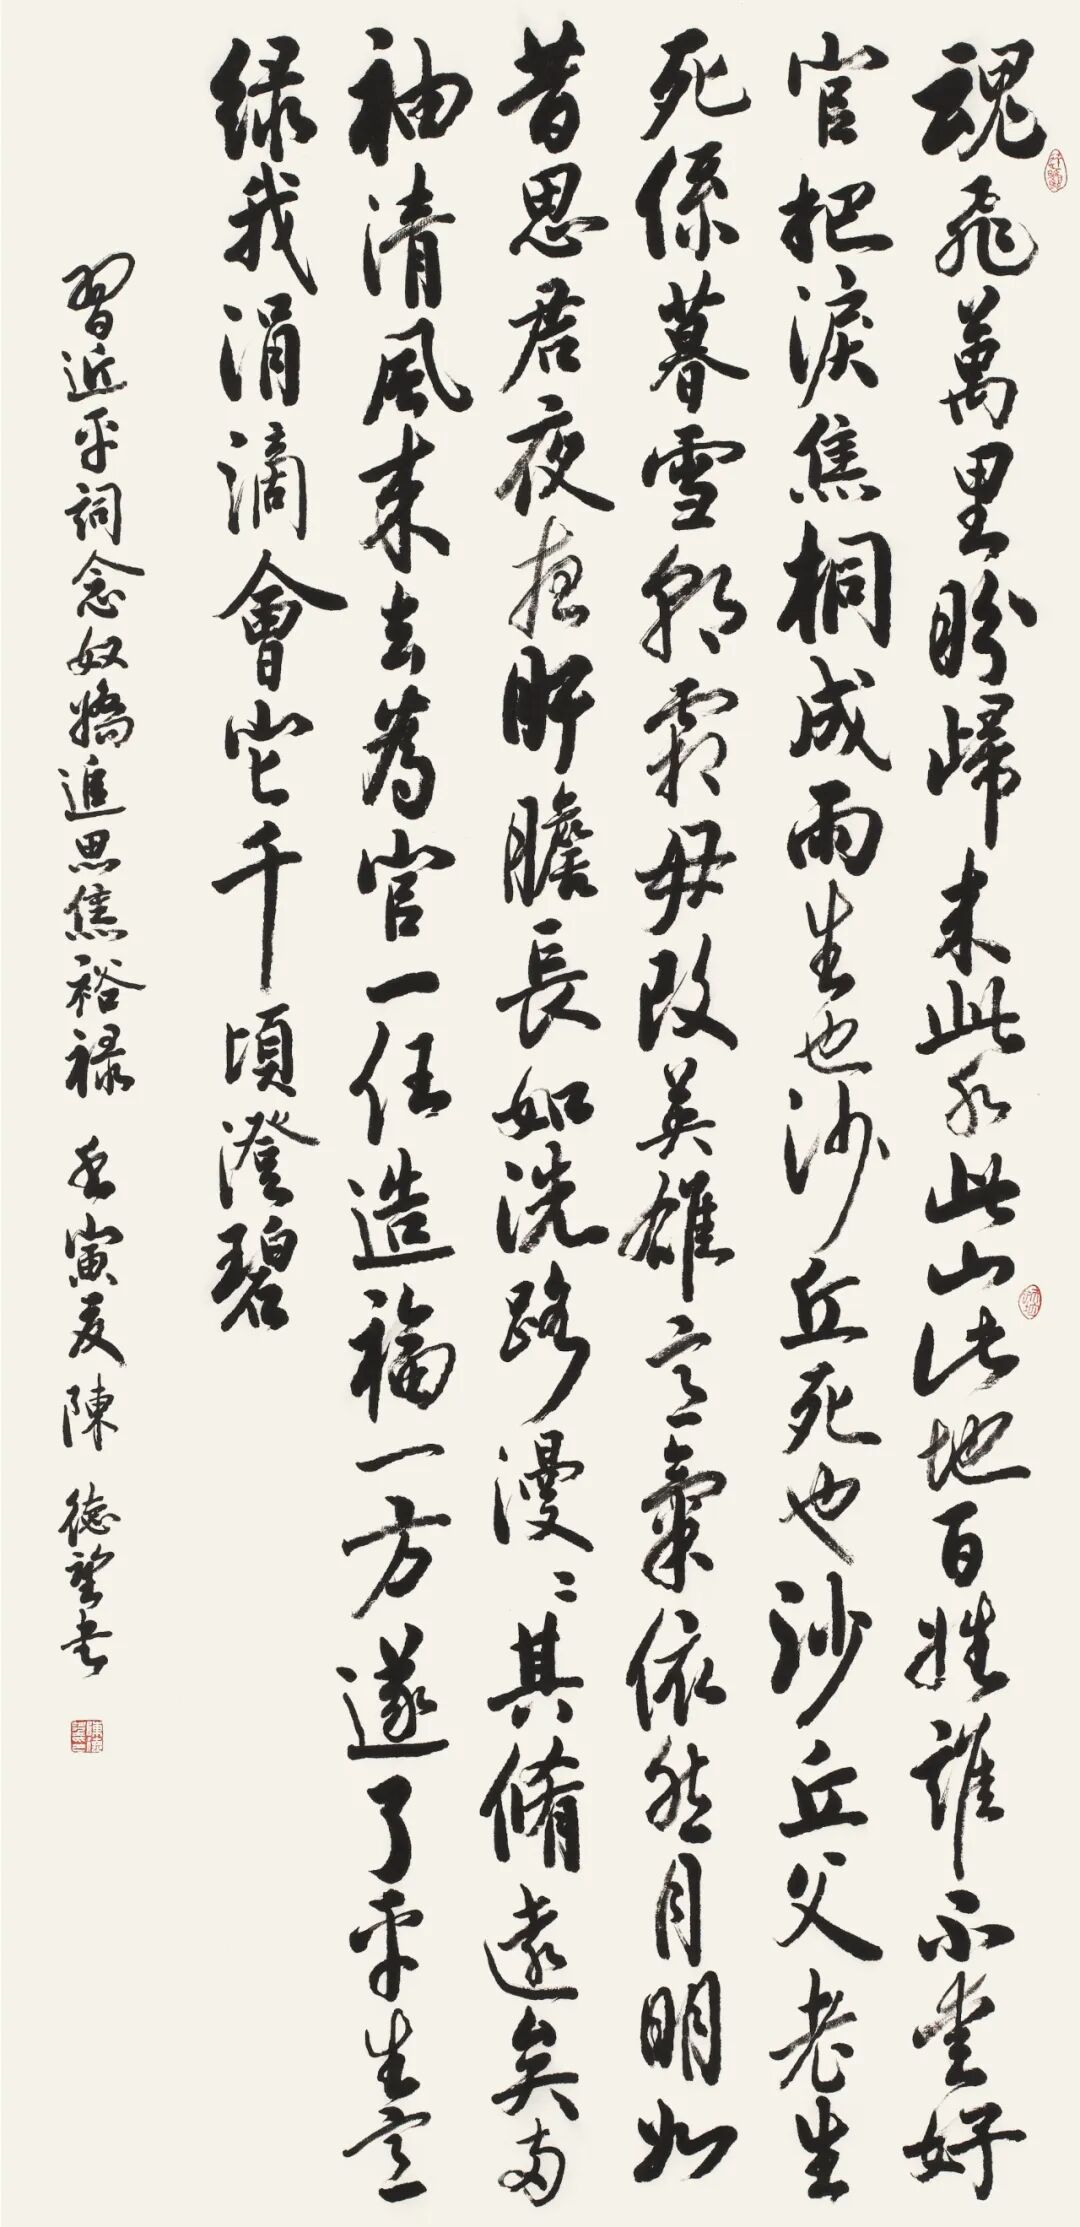 魂飛萬里盼歸來此水此山此地百姓誰不愛好
官把淚焦桐成雨生也沙丘死也沙丘父老生
死係暮雪朝霜毋改英雄意氣依然月明如
昔思君夜夜肝膽長如洗路漫〻其脩遠矣两
袖清風來去為官一任造福一方遂了平生意
绿我涓滴會它千頃澄碧
習近平詞念奴嬌追思焦裕禄 壬寅夏陳德书